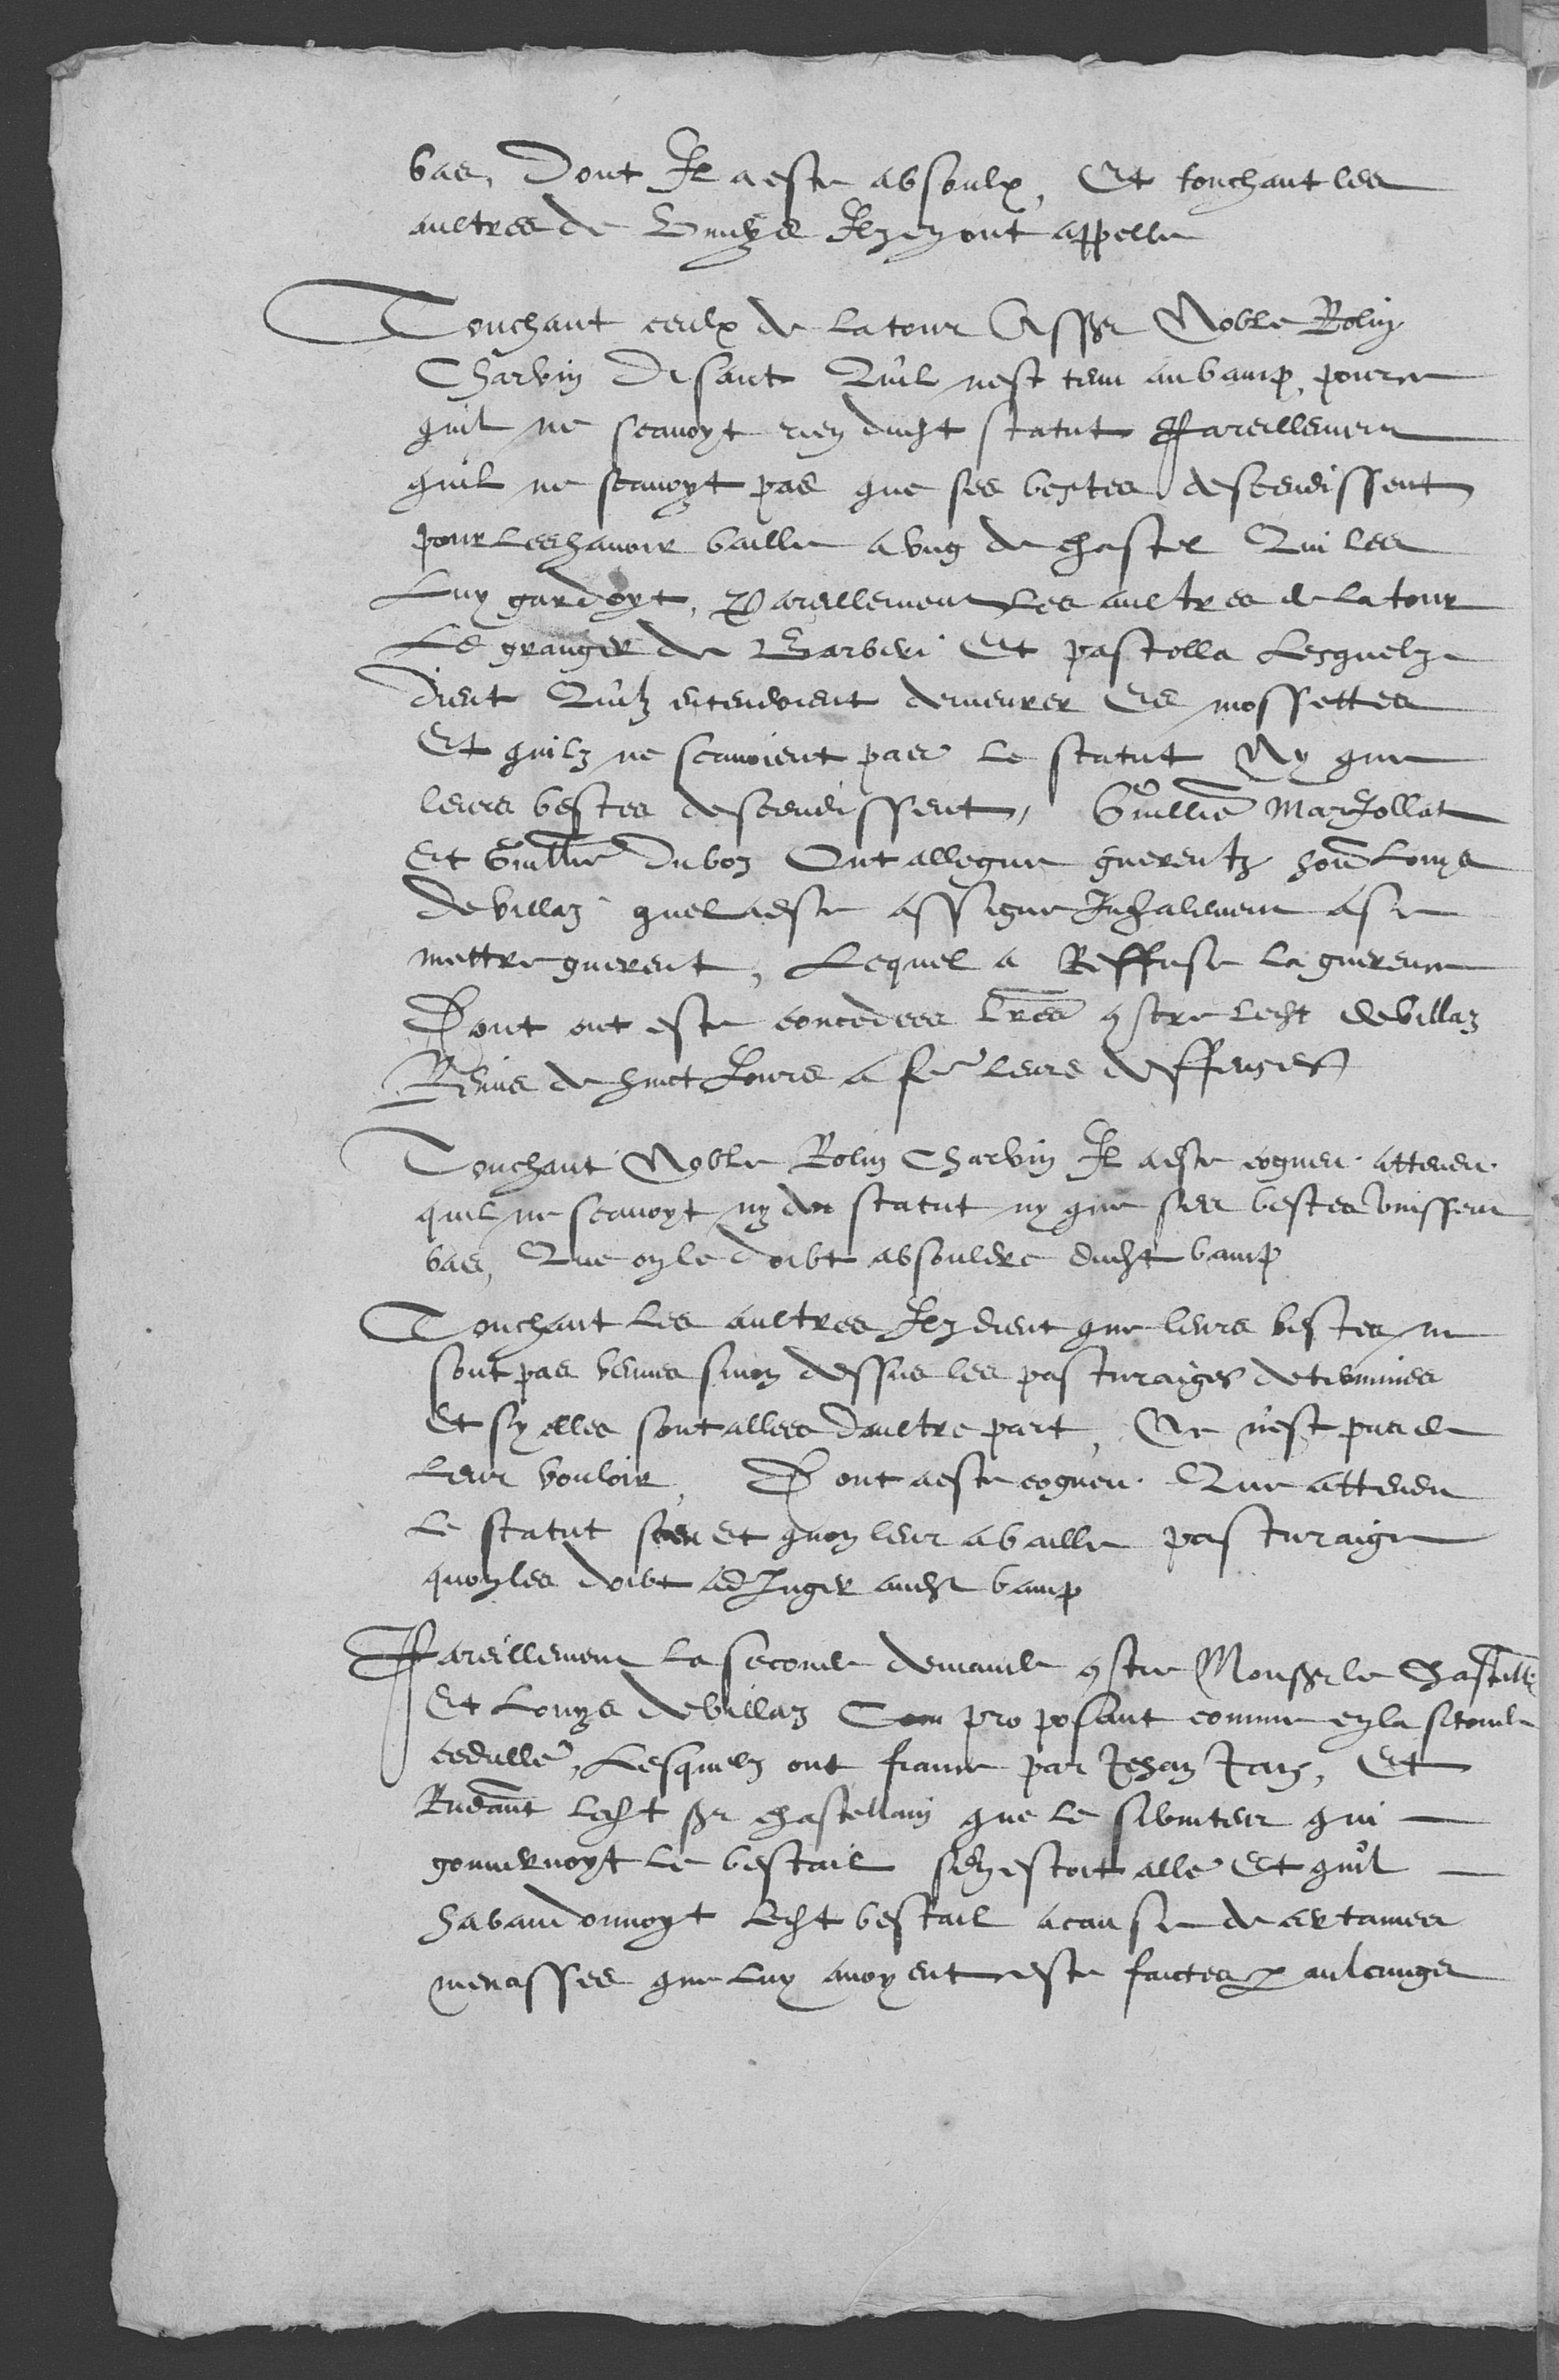 bas, Dont Il a este absoulx, Et touchant les
aultres de Gruye Ilz en ont appelle
Touchant ceulx de la tour Noble Rolin
Charvin Disant Quil nest tenu au bamp, pource
quil ne scavoyt rien dudt statut Pareillement
quil ne scavoyt pas que ses bestes descendissent
pour les havoir baille a ung de chastel Qui les
Luy gardoyt, Pareillement les aultres de la tour
Le granger de Barberi Et pastolla Lesquelz
dient Quilz entendoient demeurer Es mossettes
Et quilz ne scavoient pas le statut Ny que
leurs bestes descendissent, Guillie Marjollat
Et Guillie duboz Ont allegue guerentz Louys
de villaz quel a este assigne a se
mettre guerent, Lequel a Reffuse la guerence
Dont ont este concedees lres contre ledt de Villaz
de huict Jours a fe leurs deffenses
Touchant Noble Rolin Charvin Il a este cogneu attendu
quil ne scavoyt ny du statut ny que ses bestes vinissent
bas, Que on le doibt absouldre dudt bamp
Touchant les aultres Ilz dient que leurs bestes ne
sont pas venues sinon dessus les pasturaiges determines
Et sy elles sont allees daultre part, Ce nest pas de
leur vouloir, Dont a este cogneu Que attendu
le statut sceu Et quon leur a baille pasturaige
quon les doibt adJuger audt bamp
Pareillement la seconde demande contre Monsr le Chastell
Et Louys de Villaz proposant comme en la seconde
cedulle, Lesquelz ont par Jehan Et
ledt sr chastellain que le serviteur qui
gouvernoyt le bestail sen estoit alle Et quil
habandonnoyt ledt bestail a cause de certaines
menasses que luy avoyent este faictes p aulcunges